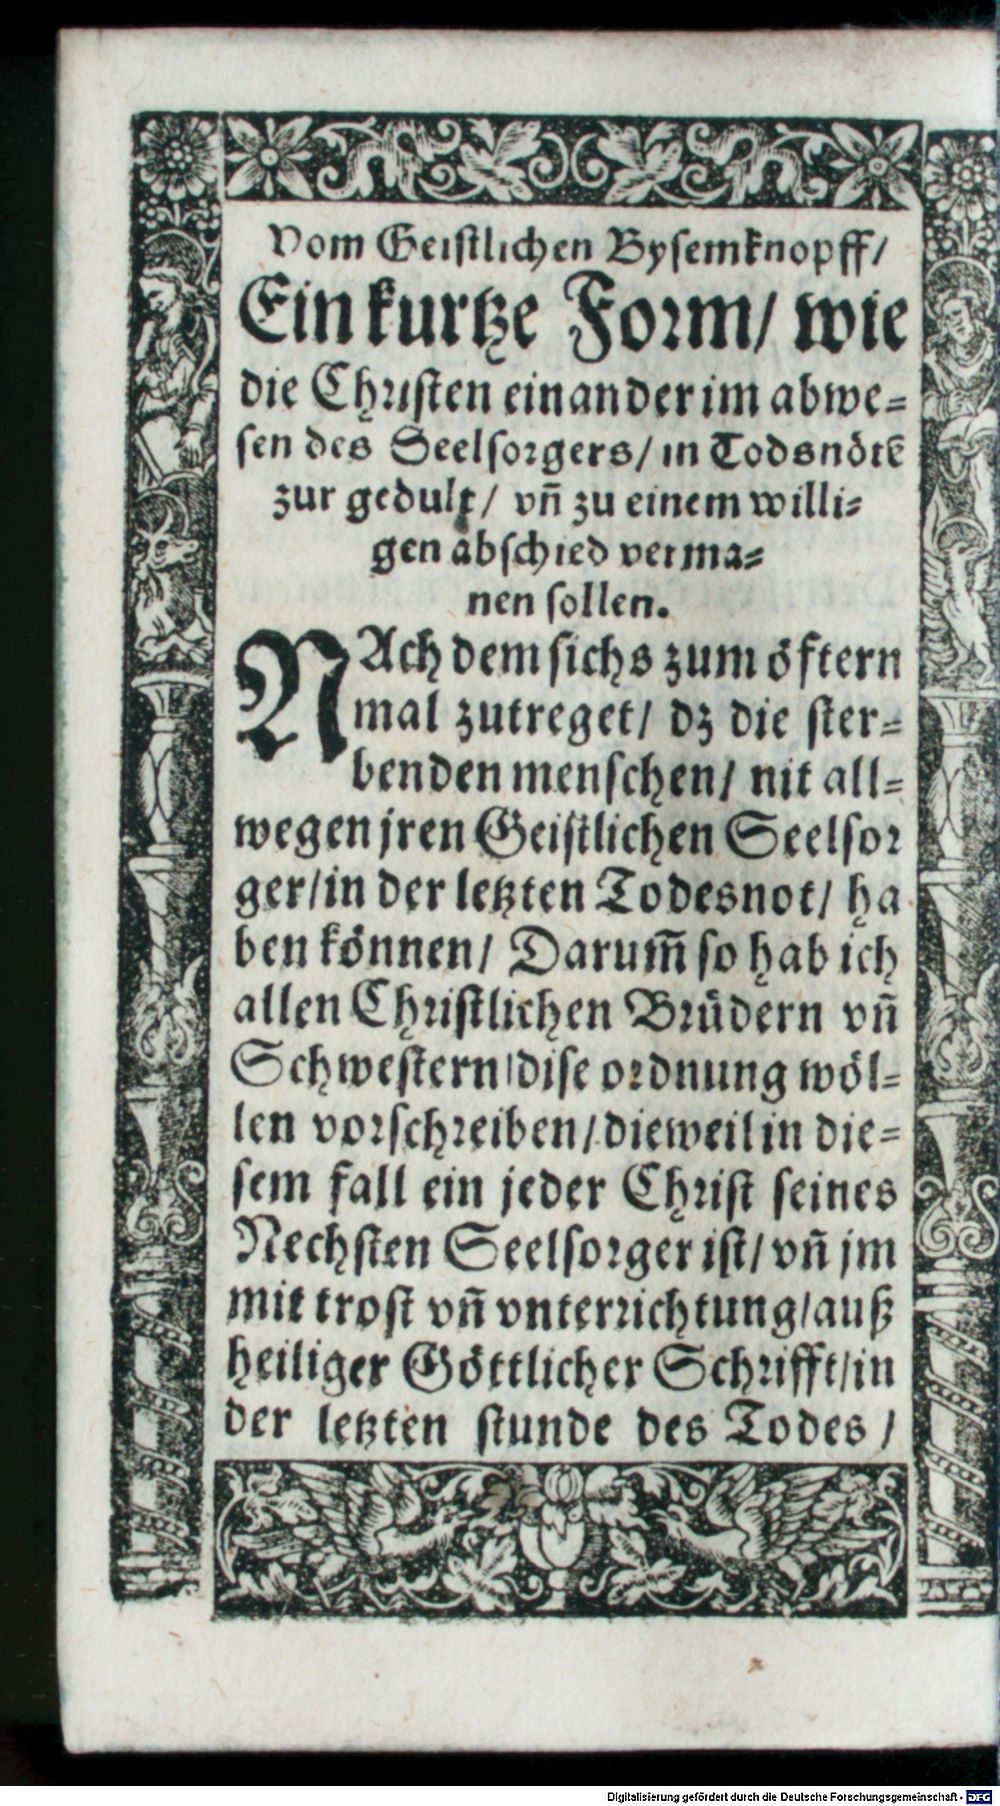 Vom Geistlichen Bysemknopff/
Ein kurtze Form/ wie
die Christen einander im abwe=
sen des Seelsorgers/ in Todsnötē
zur gedult/ vñ zu einem willi=
gen abschied verma=
nen sollen.
NAch dem sichs zum öftern
mal zutreget/ dz die ster=
benden menschen/ nit all=
wegen jren Geistlichen Seelsor
ger/in der letzten Todesnot/ ha
ben können/ Darum̃ so hab ich
allen Christlichen Brüdern vñ
Schwestern/dise ordnung wöl=
len vorschreiben/dieweil in die=
sem fall ein jeder Christ seines
Nechsten Seelsorger ist/ vñ jm
mit trost vñ vnterrichtung/auß
heiliger Göttlicher Schrifft/in
der letzten stunde des Todes /
Digitalisierung gefördert durch die Deutsche Forschungsgemeinschaft - DFG